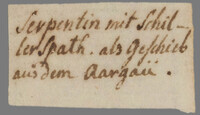 Serpentin mit Schil-
lerspath. als Geschieb
aus dem Aargaü.